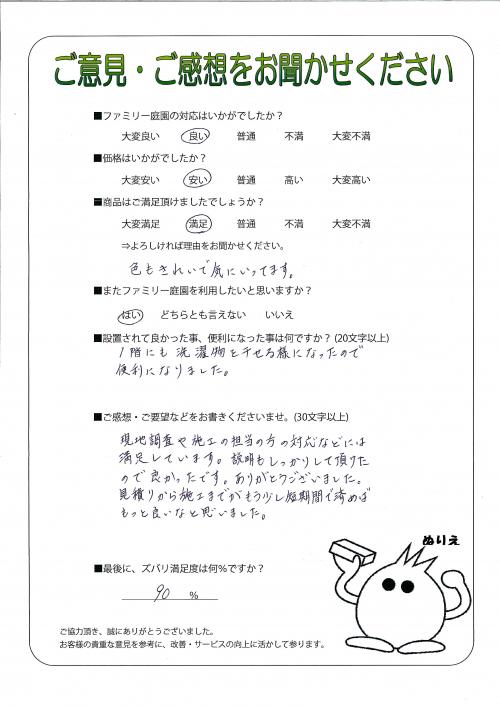 ご意見・ご感想をお聞かせください
■ファミリー庭園の対応はいかがでしたか？
大変良い 良い 普通 不満 大変不満
■価格はいかがでしたか？
大変安い 安い 普通 高い 大変高い
■商品はご満足頂けましたでしょうか？
大変満足 満足 普通 不満 大変不満
⇒よろしければ理由をお聞かせください。
色もきれいで気にいってます。
■またファミリー庭園を利用したいと思いますか？
はい どちらとも言えない いいえ
■設置されて良かった事、便利になった事は何ですか？(20文字以上)
1階にも洗濯物を干せる様になったので
便利になりました。
■ご感想・ご要望などをお書きくださいませ。(30文字以上)
現地調査や施工の担当の方の対応などには
満足しています。説明もしっかりして頂けた
ので良かったです。ありがとうございました。
見積りから施工までがもう少し短期間で済めば
もっと良いなと思いました。
ぬりえ
■最後に、ズバリ満足度は何%ですか？
90 %
ご協力頂き、誠にありがとうございました。
お客様の貴重な意見を参考に、改善・サービスの向上に活かして参ります。